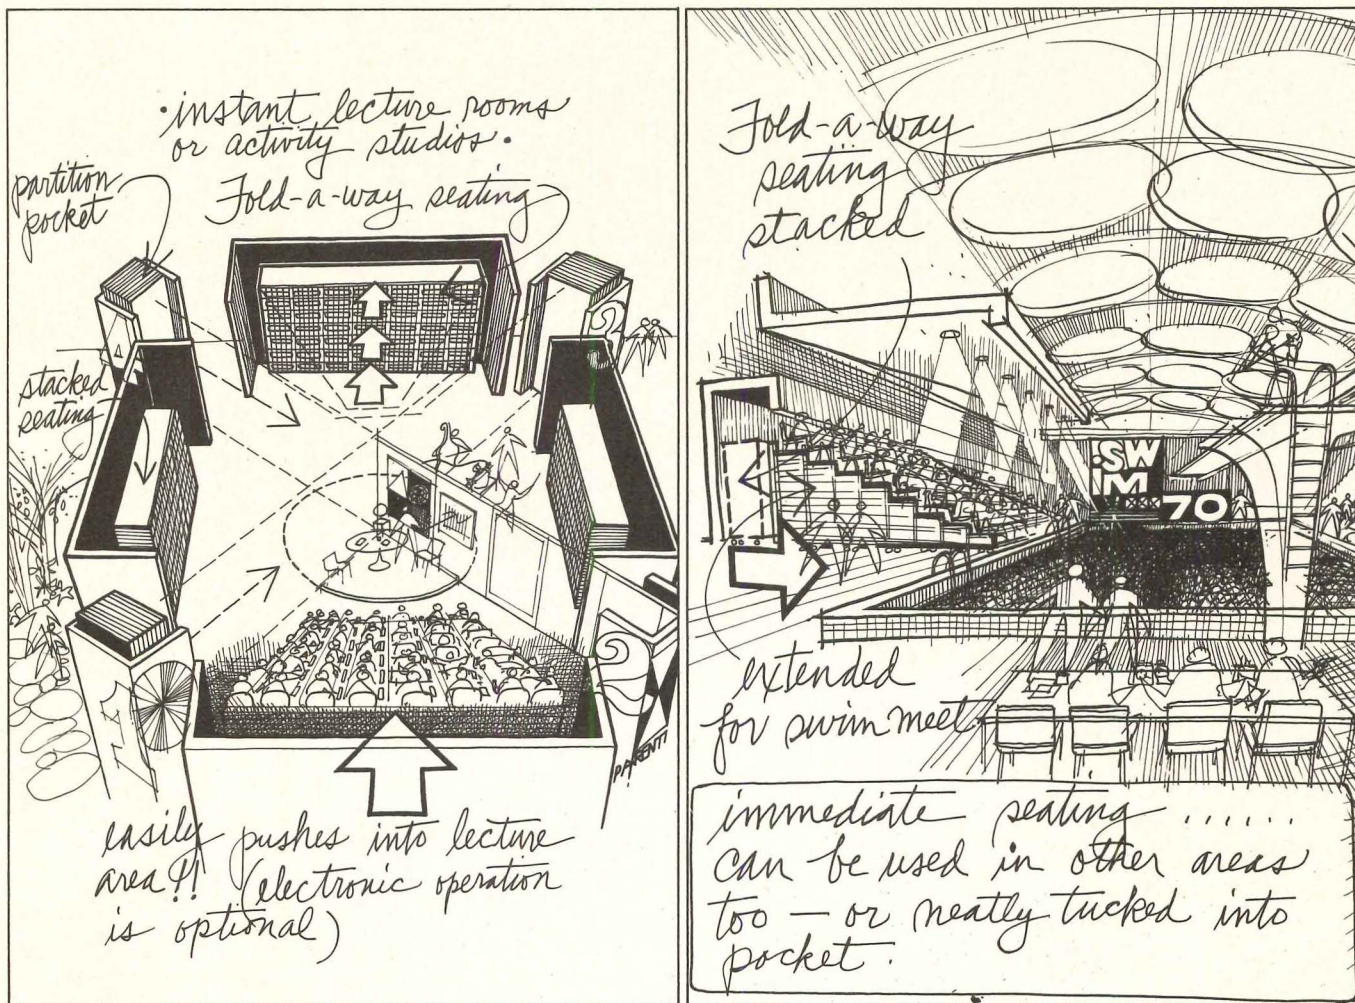 • instant lecture rooms
or activity studios •
partition
pocket
Fold-a-way seating
stacked
seating
PARENTI
easily pushes into lecture
area!! (electronic operation
is optional)
Fold-a-way
seating
stacked
SW
iM
70
extended
for swim meet
immediate seating ......
can be used in other areas
too — or neatly tucked into
pocket.